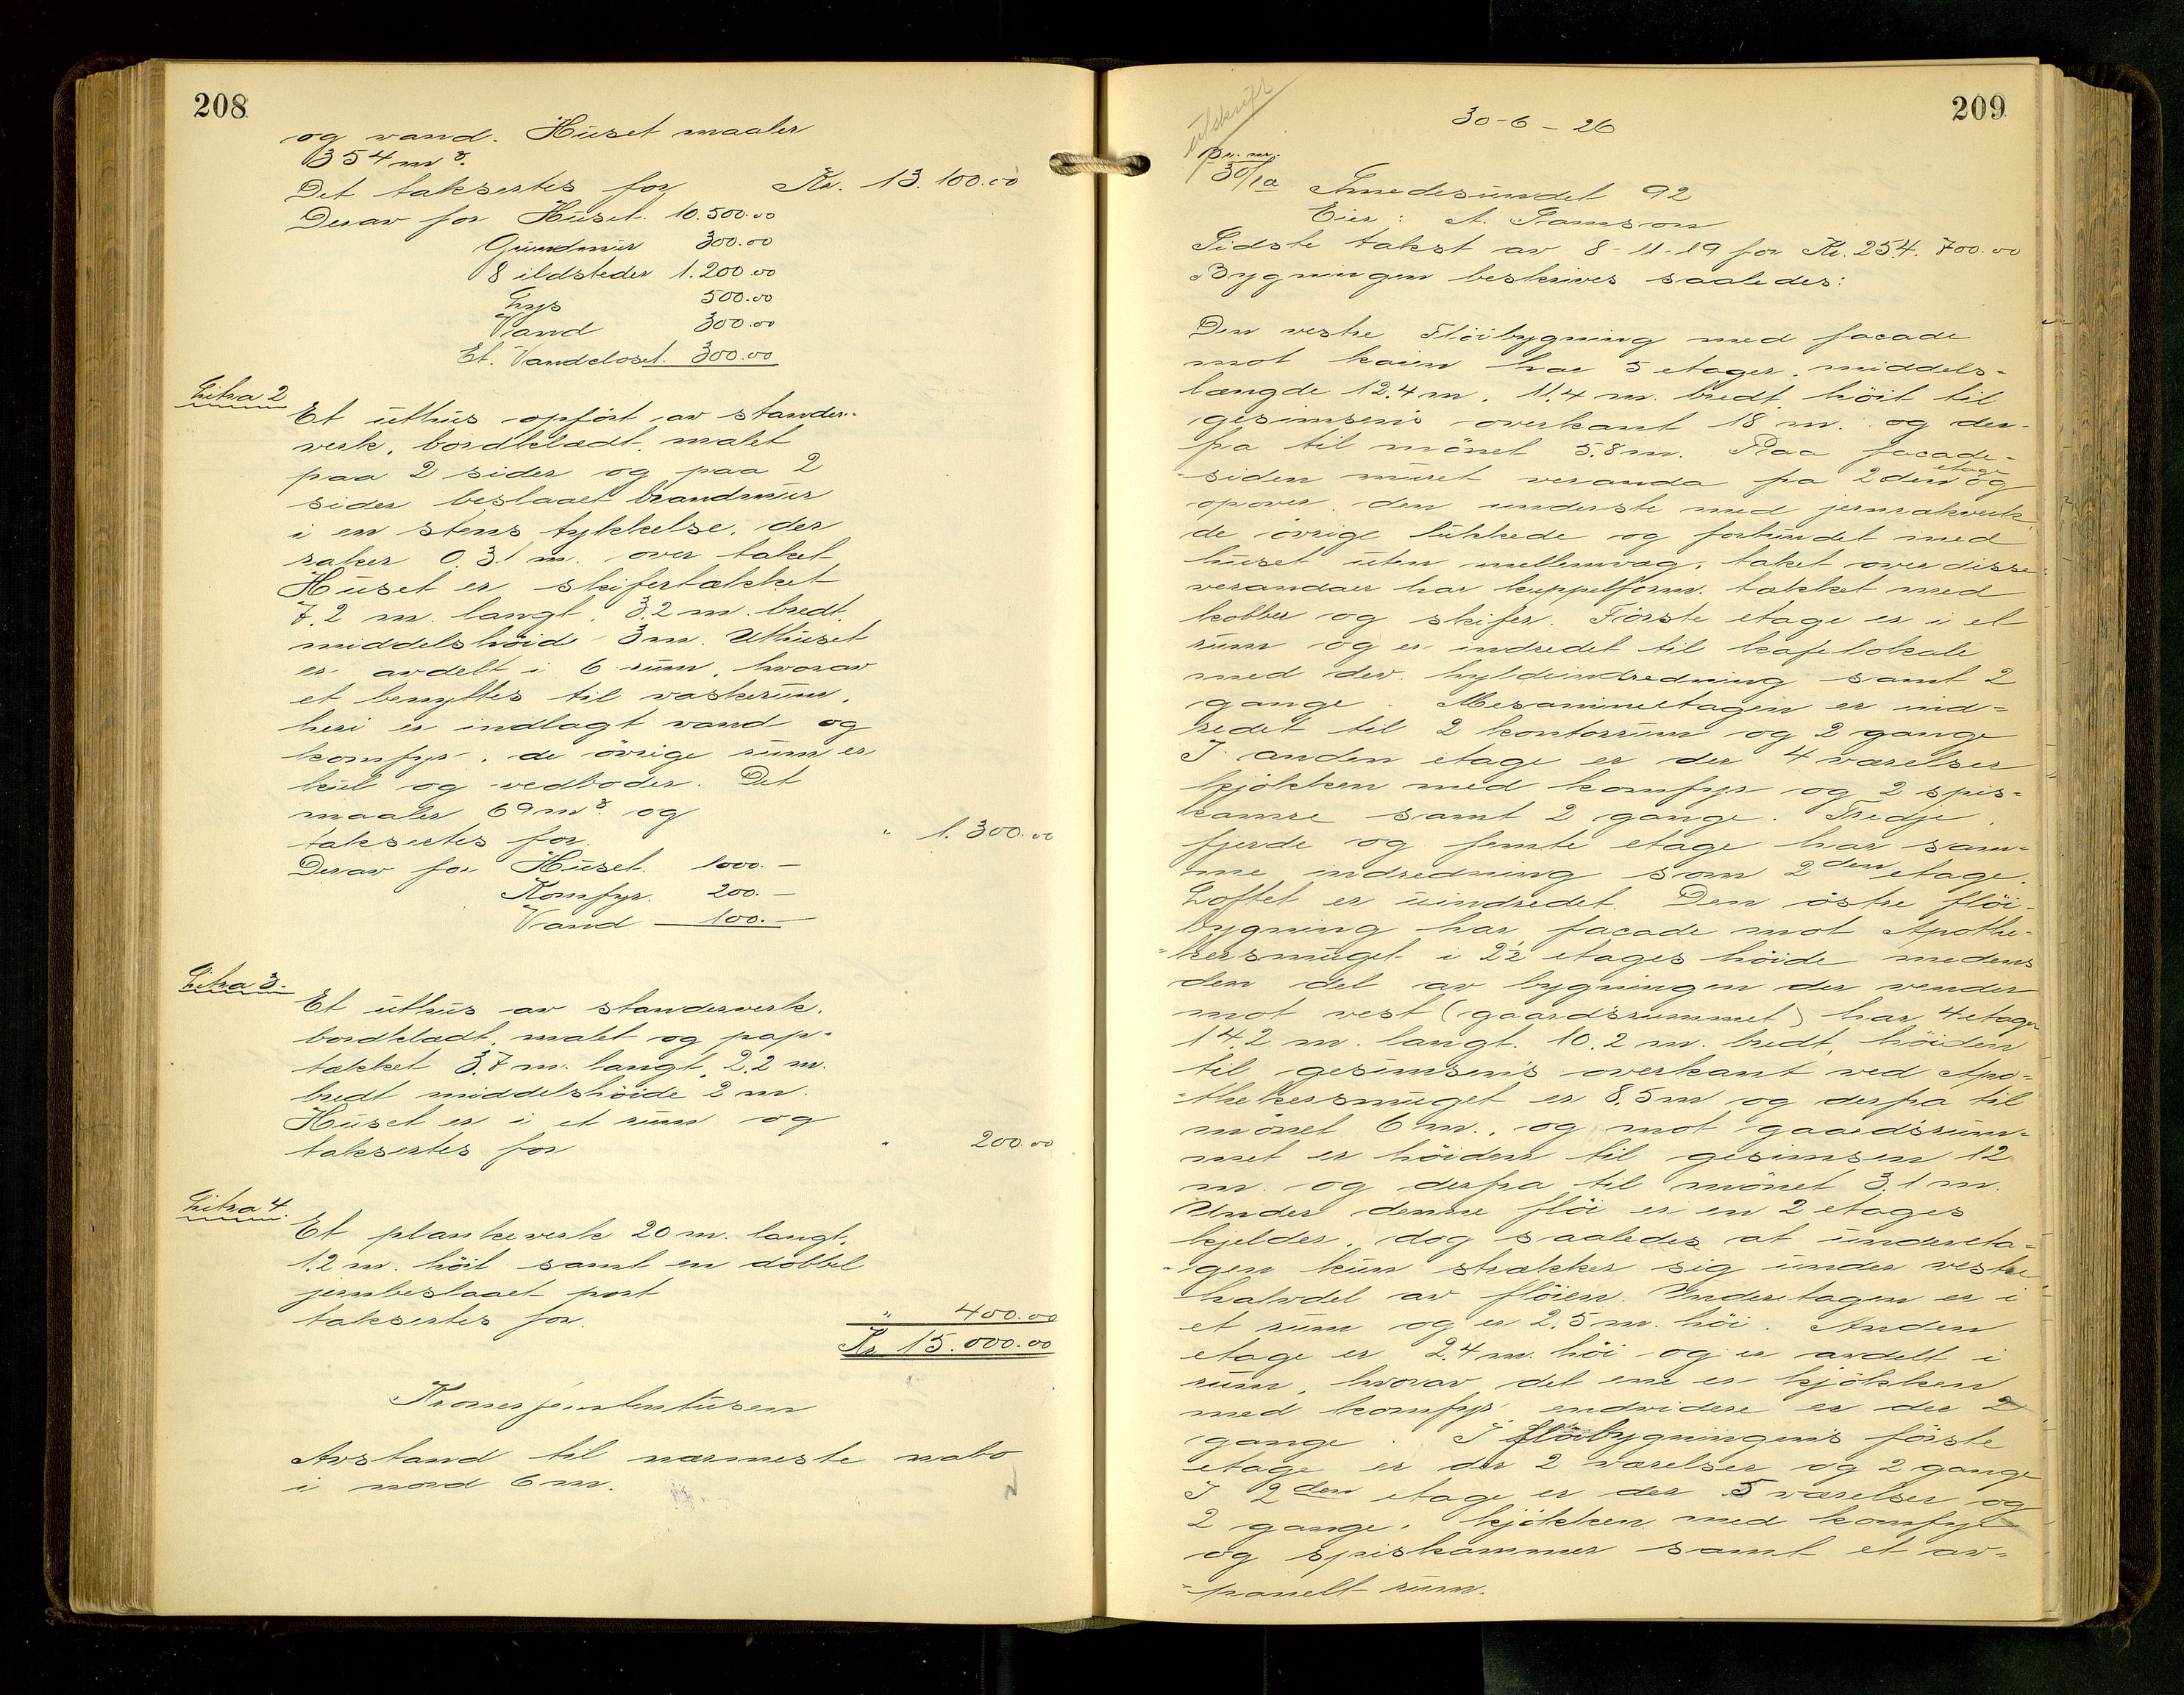 208
og vand. Huset maaler
354 m³.
Det taksertes for Kr. 13.100.00
Derav for Huset. 10.500.00
Grundmur 300.00
8 ildsteder 1.200.00
Lys 500.00
Vand 300.00
Et. Vandcloset. 300.00
Litra 2
Et uthus opført av stender-
verk, bordklædt, malet
paa 2 sider og paa 2
sider beslaaet brandmur
i en stens tykkelse, der
raker 0.31 m. over taket
Huset er skifertækket
7.2 m. langt, 3.2 m. bredt,
middelshøide 3 m. Uthuset
er avdelt i 6 rum, hvorav
et benyttes til vaskerum,
heri er indlagt vand og
komfyr, de øvrige rum er
kul og vedboder. Det
maaler 69 m³. og
taksertes for. " 1.300.00
Derav for Huset. 1000.—
Komfyr. 200.—
Vand 100.—
Litra 3.
Et uthus av stenderverk.
bordklædt, malet og pap-
tækket 3.7 m. langt, 2.2 m.
bredt middelshøide 2 m.
Huset er i et rum og
taksertes for " 200.00
Litra 4.
Et plankeverk 20 m. langt,
1.2 m. høit samt en dobbel
jernbeslaaet port
taksertes for. " 400.00
Kr. 15.000.00
Kroner femtentusen
Avstand til nærmeste nabo
i nord 6 m.
209
utskrift
30-6-26
Br. nr.
30/1a Smedesundet 92
Eier: A. Samson
Sidste takst av 8-11-19 for Kr. 254.700.00
Bygningen beskrives saaledes:
Den vestre Fløibygning med facade
mot kaien har 5 etager, middels-
længde 12.4 m, 11.4 m. bredt, høit til
gesimsens overkant 18 m. og der-
fra til mønet 5.8 m. Paa facade-
siden muret veranda fra 2den etage og
opover, den underste med jernrækverk,
de øvrige lukkede og forbundet med
huset uten mellemvæg, taket over disse
verandaer har kuppelform, tækket med
kobber og skifer. Første etage er i et
rum og er indredet til kafelokale
med der. hyldeindredning samt 2
gange. Mesaninetagen er ind-
redet til 2 kontorrum og 2 gange
I anden etage er der 4 værelser
kjøkken med komfyr og 2 spis-
kamre samt 2 gange. Tredje,
fjerde og femte etage har sam-
me indredning som 2den etage.
Loftet er uindredet. Den østre fløi-
bygning har facade mot Apothe-
kersmuget i 2½ etages høide medens
den del av bygningen der vender
mot vest (gaardsrummet) har 4 etager
14.2 m. langt. 10.2 m. bredt, høiden
til gesimsens overkant ved Apo-
thekersmuget er 8.5 m og derfra til
mønet 6 m., og mot gaardsrum-
met er høiden til gesimsen 12
m. og derfra til mønet 3.1 m.
Under denne fløi er en 2 etages
kjelder, dog saaledes at undereta-
gen kun strækker sig under vestre
halvdel av fløien. Underetagen er i
et rum og er 2.5 m. høi. Anden
etage er 2.4 m. høi og er avdelt i
rum, hvorav det ene er kjøkken
med komfyr endvidere er der 2
gange. I fløibygningens første
etage er der 2 værelser og 2 gange
I 2den etage er der 5 værelser og
2 gange, kjøkken med komfyr
og spiskammer samt et av-
panelt rum.